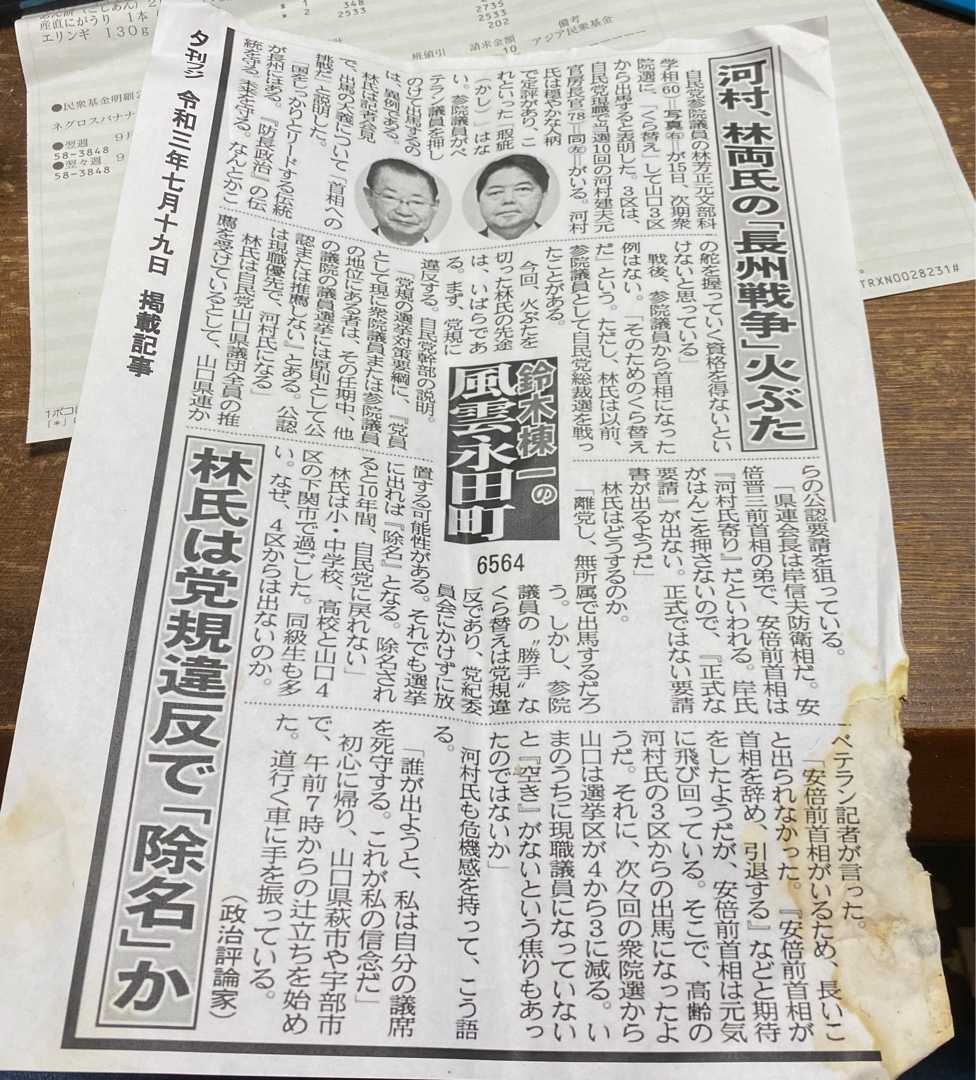 夕刊フジ 令和三年七月十九日 掲載記事
河村、林両氏の「長州戦争」火ぶた
自民党参院議員の林芳正元文部科
学相60＝写真㊨＝が15日、次期衆
院選に、「くら替え」して山口3区
から出馬すると表明した。3区は、
自民党現職で当選10回の河村建夫元
官房長官78＝同㊧＝がいる。河村
氏は穏やかな人柄
で定評があり、こ
れといった「瑕疵
（かし）」はな
い。参院議員がベ
テラン議員を押し
のけて出馬するの
は、異例である。
林氏は記者会見
で、出馬の大義について「首相への
挑戦だ」と説明した。
「国をしっかりとリードする伝統
が長州にはある。『防長政治』の伝
統を守る。未来を守る。なんとかこ
の舵を握っていく資格を得ないとい
けないと思っている」
戦後、参院議員から首相になった
例はない。「そのためのくら替え
だ」という。ただし、林氏は以前、
参院議員として自民党総裁選を戦っ
たことがある。
今回、火ぶたを
切った林氏の先途
は、いばらであ
る。まず、党規に
違反する。自民党幹部の説明。
「党規の選挙対策要綱に、『党員
として現に衆院議員または参院議員
の地位にある者は、その任期中、他
の議院の議員選挙には原則として公
認または推薦しない』とある。公認
は現職優先で、河村氏になる」
林氏は自民党山口県議団全員の推
薦を受けているとして、山口県連か
鈴木棟一の
風雲永田町
6564
らの公認要請を狙っている。
「県連会長は岸信夫防衛相だ。安
倍晋三前首相の弟で、安倍前首相は
『河村氏寄り』だといわれる。岸氏
がはんこを押さないので、『正式な
要請』が出ない。正式ではない要請
書が出るようだ」
林氏はどうするのか。
「離党し、無所属で出馬するだろ
う。しかし、参院
議員の〝勝手〟な
くら替えは党規違
反であり、党紀委
員会にかけずに放
置する可能性がある。それでも選挙
に出れば『除名』となる。除名され
ると10年間、自民党に戻れない」
林氏は小・中学校、高校と山口4
区の下関市で過ごした。同級生も多
い。なぜ、4区からは出ないのか。
ベテラン記者が言った。
「安倍前首相がいるため、長いこ
と出られなかった。『安倍前首相が
首相を辞め、引退する』などと期待
をしたようだが、安倍前首相は元気
に飛び回っている。そこで、高齢の
河村氏の3区からの出馬になったよ
うだ。それに、次々回の衆院選から
山口は選挙区が4から3に減る。い
まのうちに現職議員になっていない
と『空き』がないという焦りもあっ
たのではないか」
河村氏も危機感を持って、こう語
る。
「誰が出ようと、私は自分の議席
を死守する。これが私の信念だ」
初心に帰り、山口県萩市や宇部市
で、午前7時からの辻立ちを始め
た。道行く車に手を振っている。
（政治評論家）
林氏は党規違反で「除名」か
産直にがうり 1本
エリンギ 130g
348
2533
2735
2533
202
班値引
請求金額
10
備考
アジア民衆基金
●民衆基金明願
ネグロスバナナ
●翌週 9
58-3848
●翌々週 9
58-3848
TRXN0028231#